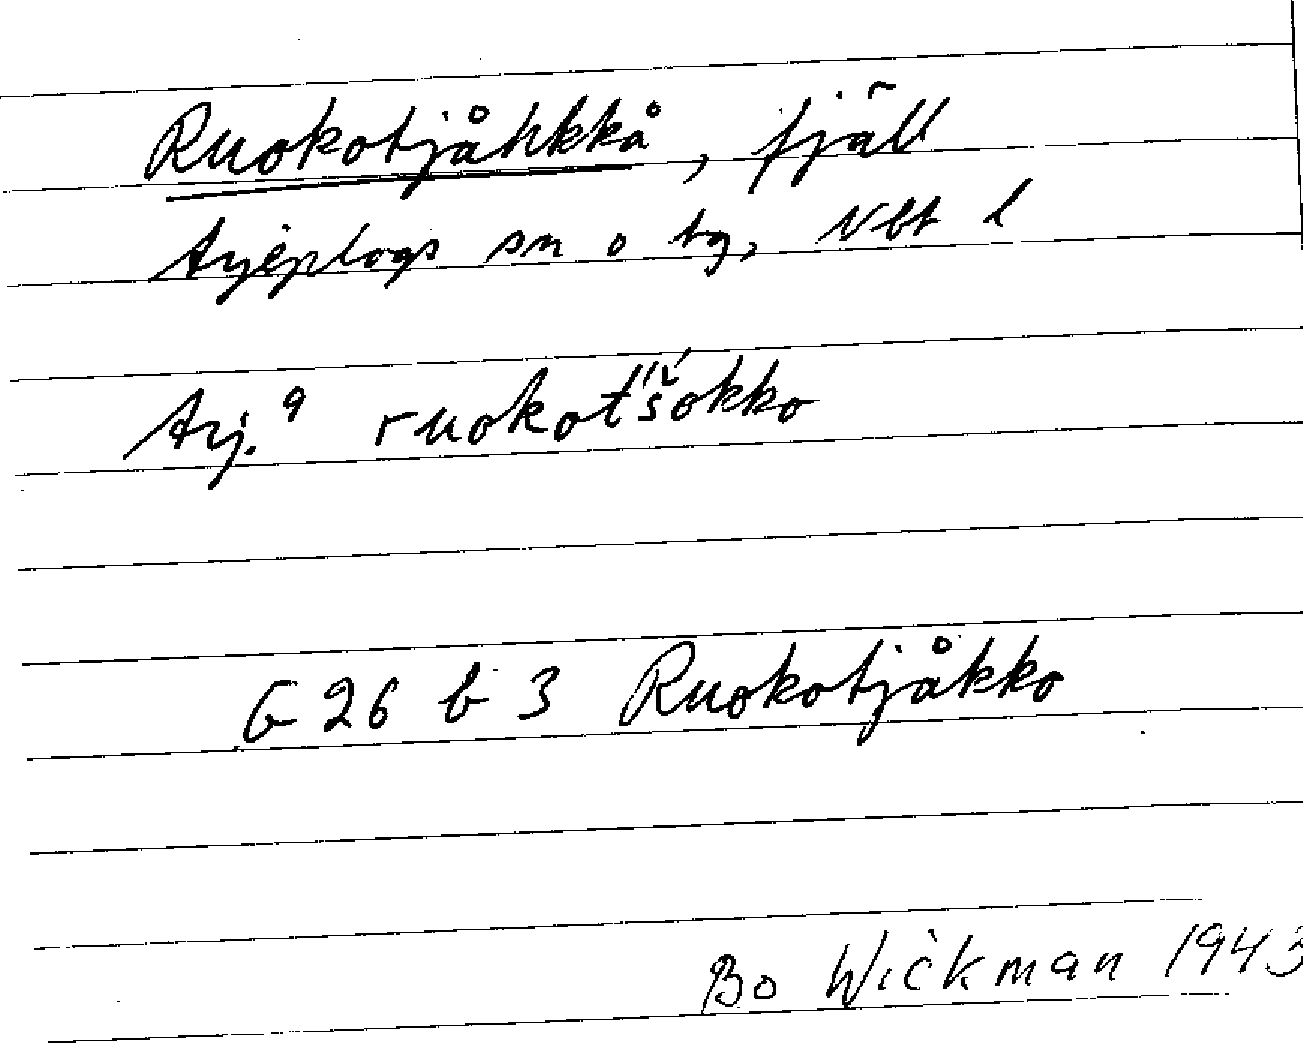 Ruokotjåhkkå, fjäll
Arjeplogs sn o tg, Vbt l
Arj. 9 ruokot'šokko
G 26 b 3 Ruokotjåkko
Bo Wickman 1943